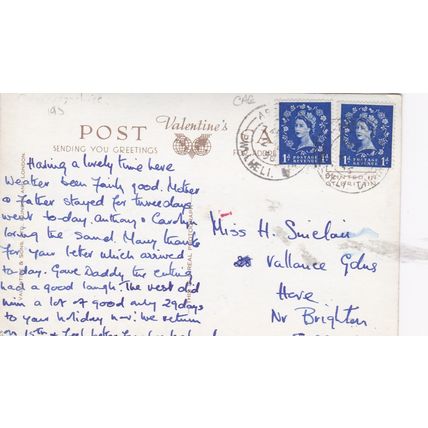 CAE
93
POST Valentine's
SENDING YOU GREETINGS
Having a lovely time here
Weather been fairly good. Mother
& Father stayed for three days
went to-day. Anthony & Carolyn
loving the sand. Many thanks
for your letter which arrived
to-day. Gave Daddy the cutting
had a good laugh. The rest did
him a lot of good only 29 days
to your holiday now. We return
on 15th &
VALENTINE & SONS
AND LONDON
PWLLHELI
POSTAGE
REVENUE
1d 1d
POSTAGE
REVENUE
1d 1d
PRINTED IN
GT. BRITAIN
Miss H. Sinclair
28 Vallance Gdns
Hove
Nr Brighton